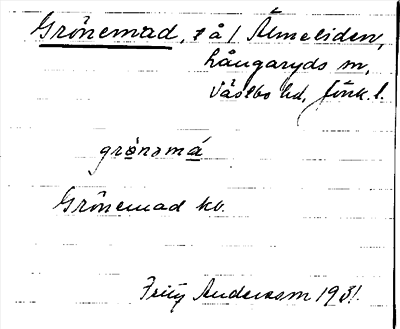 Grönemad, å / Älmeliden,
Långaryds sn,
Västbo hd, Jönk. l.
grönəmá
Grönemad kb.
Fritz Andersson 1931.